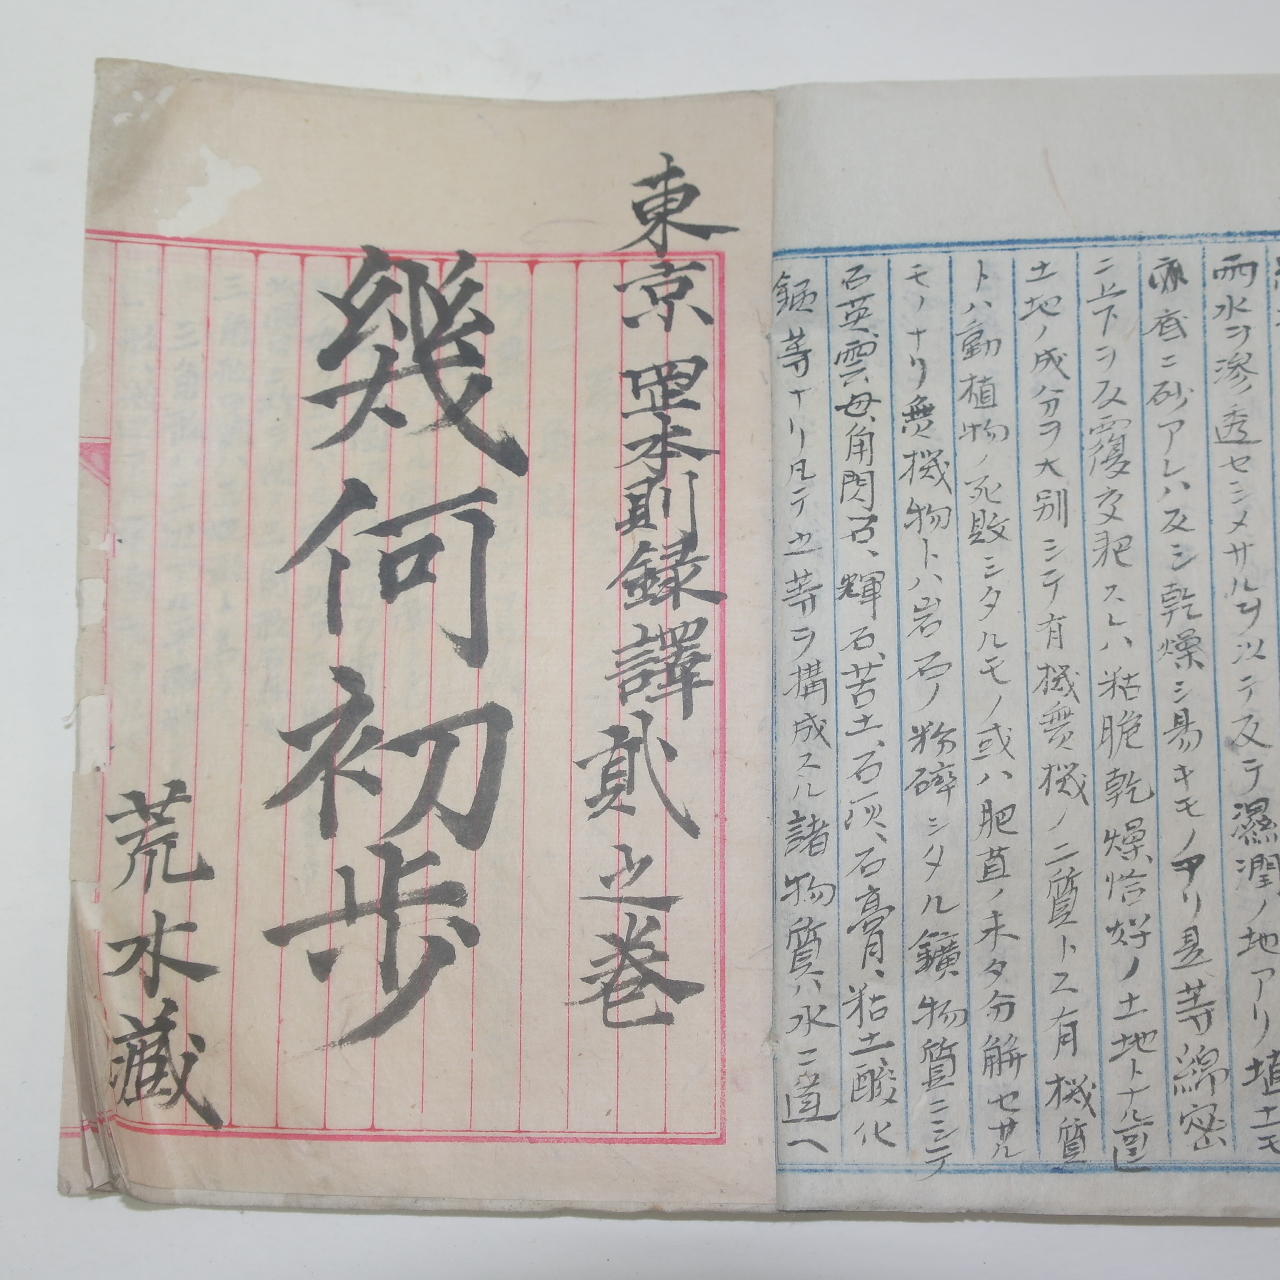 雨水ヲ滲透セシメサルヲ以テ反テ濕潤ノ地アリ埴土モ
亦底ニ砂アレハ反シ乾燥シ易キモノアリ是等綿密
ニ上下ヲ反覆交耙スレハ粘脆乾燥恰好ノ土地トナル
土地ノ成分ヲ大別シテ有機無機ノ二質トス有機質
トハ動植物ノ死敗シタルモノ或ハ肥苴ノ未タ分解セサル
モノナリ無機物トハ岩石ノ粉碎シタル鑛物質ニシテ
石英、雲母、角閃石、輝石、苦土、石灰、石膏、粘土、酸化
等ナリ凡テ等ヲ構成スル諸物質ハ水ニ
東京 岡本則録譯 貳之巻
幾何初歩
荒木藏